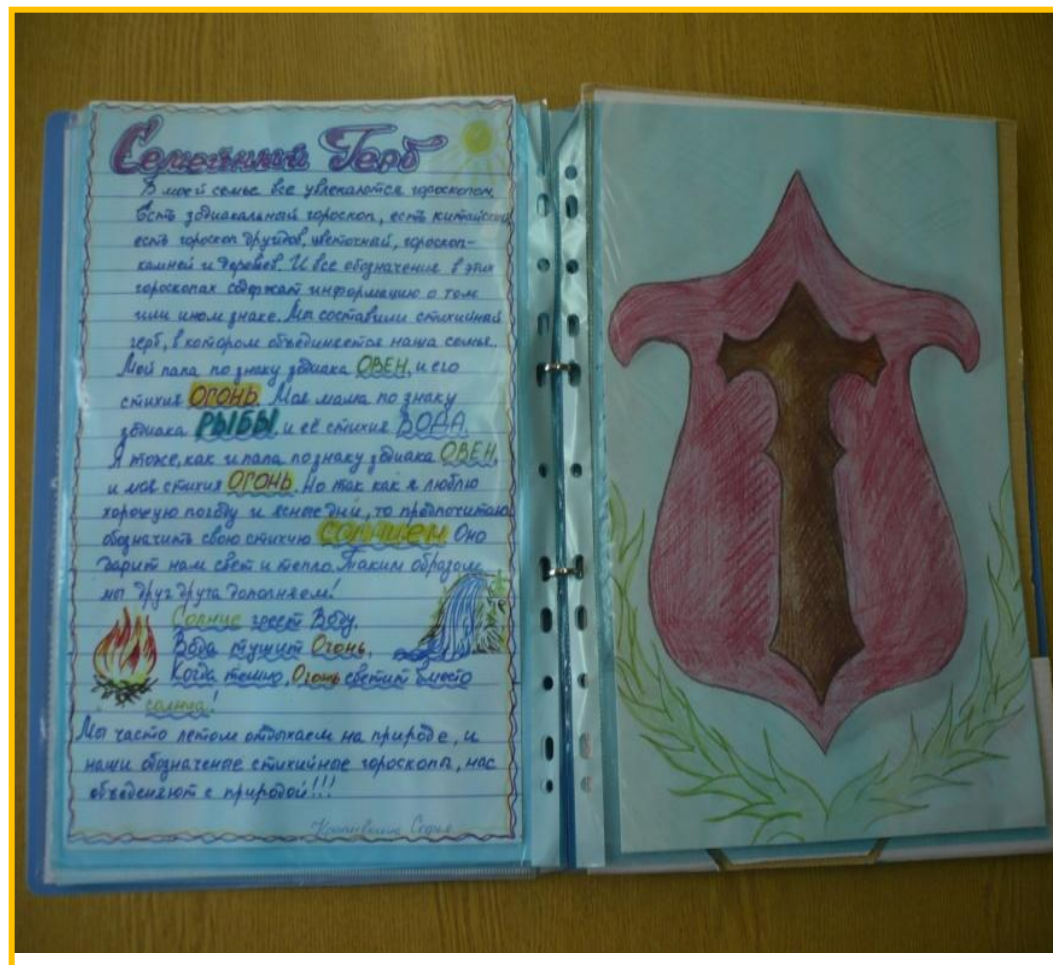 Семейный Герб
В моей семье все увлекаются гороскопом.
Есть зодиакальный гороскоп, есть китайский,
есть гороскоп друидов, цветочный, гороскоп-
камней и деревьев. И все обозначение в этих
гороскопах содержат информацию о том
или ином знаке. Мы составили стихийный
герб, в котором объединяется наша семья.
Мой папа по знаку зодиака ОВЕН, и его
стихия ОГОНЬ. Моя мама по знаку
зодиака РЫБЫ, и её стихия ВОДА.
Я тоже, как и папа по знаку зодиака ОВЕН,
и моя стихия ОГОНЬ. Но так как я люблю
хорошую погоду и ясные дни, то предпочитаю
обозначить свою стихию СОЛНЦЕМ. Оно
дарит нам свет и тепло. Таким образом,
мы друг друга дополняем!
Солнце греет Воду.
Вода тушит Огонь.
Когда темно, Огонь светит вместо
солнца!
Мы часто летом отдыхаем на природе, и
наши обозначеные стихийные гороскопы, нас
объеденяют с природой!!!
София